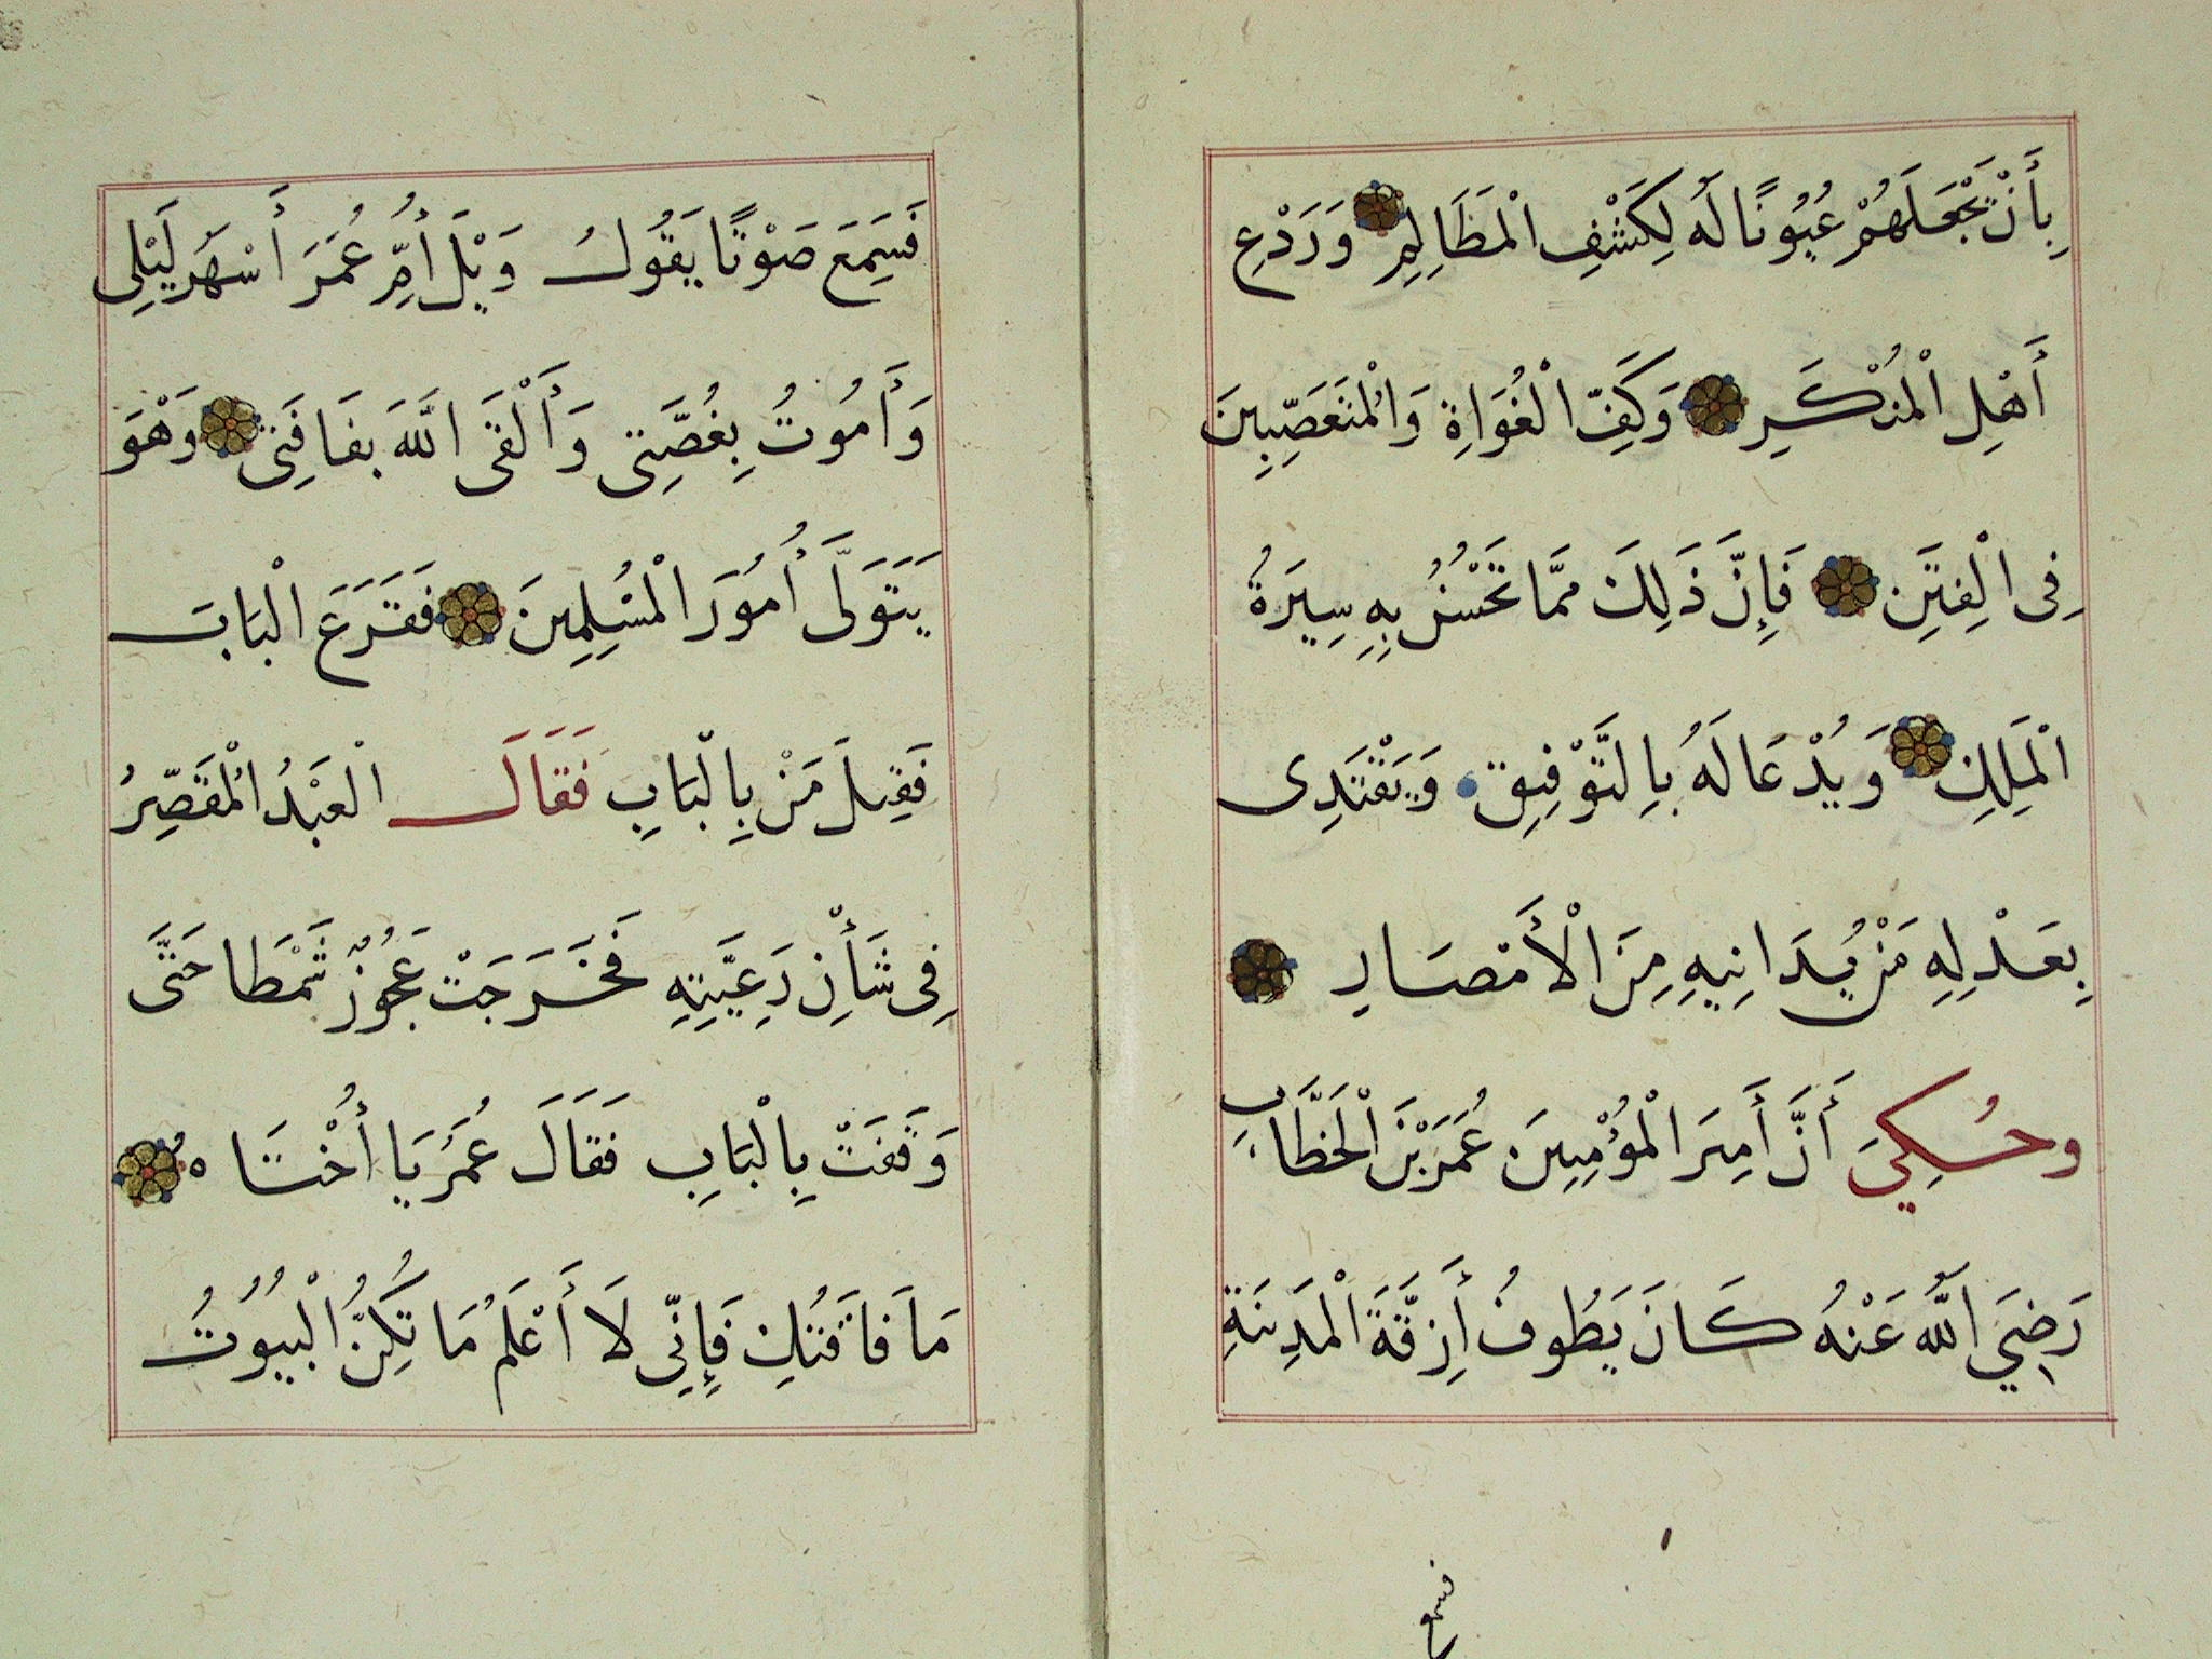 بِأَنْ تَجْعَلَهُمْ عُيُونًا لَهُ لِكَشْفِ الْمَظَالِمِ وَرَدْعِ
أَهْلِ الْمُنْكَرِ وَكَفِّ الْغُوَاةِ وَالْمُتَعَصِّبِينَ
فِى الْفِتَنِ فَإِنَّ ذَلِكَ مِمَّا تَحْسُنُ بِهِ سِيرَةُ
الْمَلِكِ وَيُدْعَا لَهُ بِالتَّوْفِيقِ وَيَقْتَدِى
بِعَدْلِهِ مَنْ يُدَانِيهِ مِنَ الْأَمْصَارِ
وحُكِيَ أَنَّ أَمِيرَ الْمُؤْمِنِينَ عُمَرَ بْنَ الْخَطَّابِ
رَضِيَ اللَّهُ عَنْهُ كَانَ يَطُوفُ أَزِقَّةَ الْمَدِينَةِ
فسمع
فَسَمِعَ صَوْتًا يَقُولُ وَيْلَ أُمِّ عُمَرَ أَسْهَرُ لَيْلِى
وَأَمُوتُ بِغُصَّتِى وَأَلْقَى اللَّهَ بِفَاقَتِى وَهْوَ
يَتَوَلَّى أُمُورَ الْمُسْلِمِينَ فَقَرَعَ الْبَابَ
فَقِيلَ مَنْ بِالْبَابِ فَقَالَ الْعَبْدُ الْمُقَصِّرُ
فِى شَأْنِ رَعِيَّتِهِ فَخَرَجَتْ عَجُوْزٌ شَمْطَا حَتَّى
وَقَفَتْ بِالْبَابِ فَقَالَ عُمَرُ يَا أُخْتَاهُ
مَا فَاقَتُكِ فَإِنِّى لَا أَعْلَمُ مَا تُكِنُّ الْبُيُوْتُ